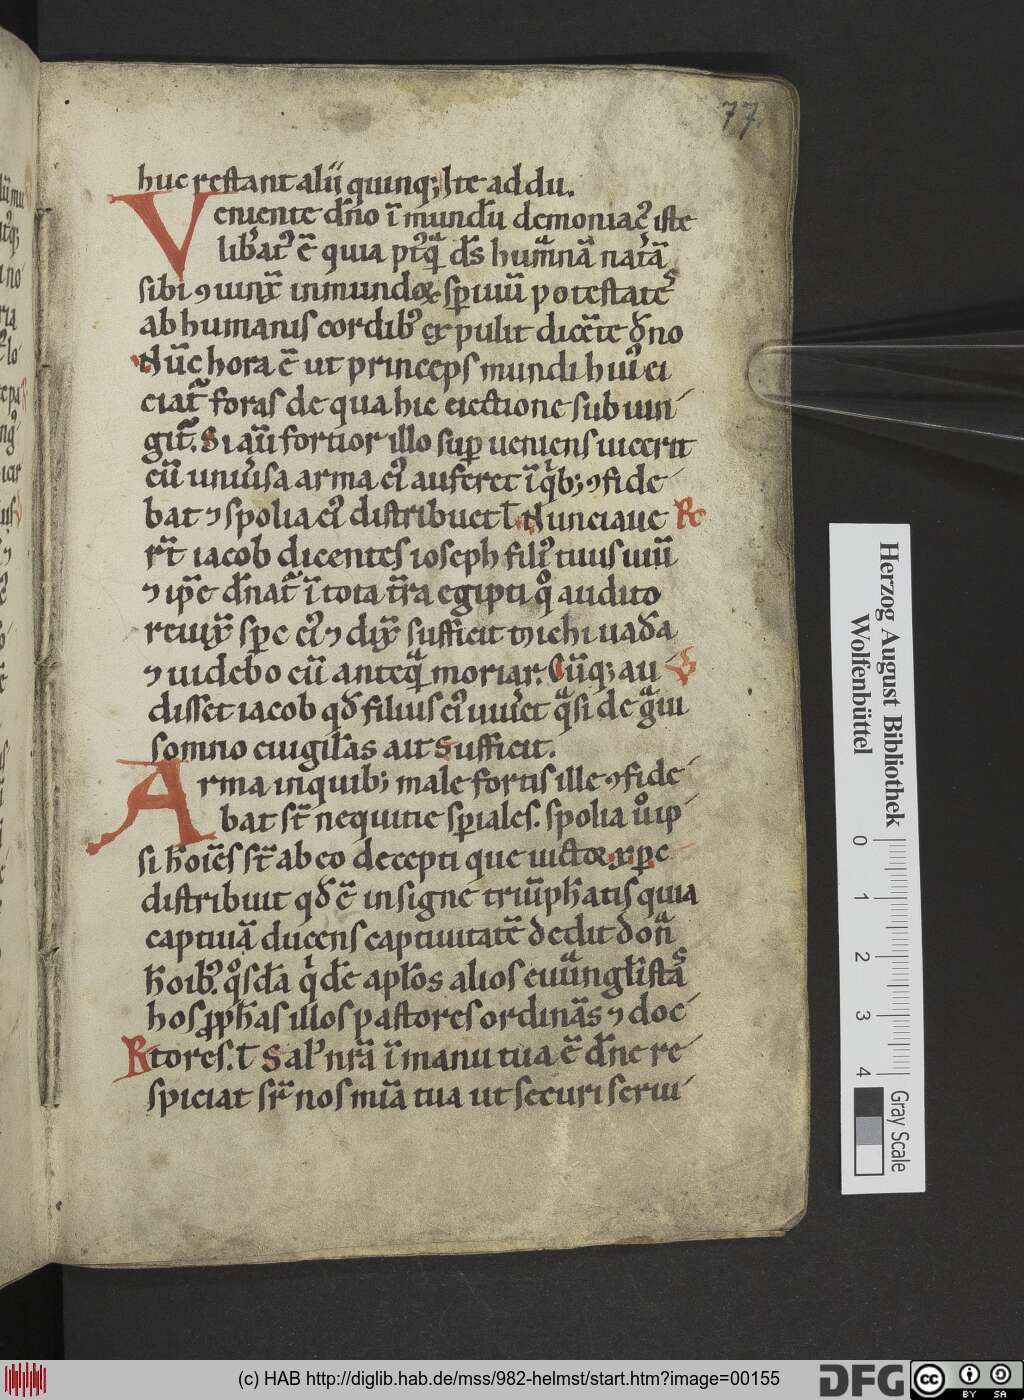 77.
huc restant alii quinq; hic addu.
Veniente dn̄o ī mund̄u demoniac᷒ iste
lib̄at᷒ ē quia pt᷒q̄ d̄s humanā natā
sibi ⁊ uinx̄ inmundoꝝ sp̄iuū potestatē
ab humanis cordib᷒ expulit dicēte dn̄o
Nūc hora ē ut princeps mundi hui᷒ ei
ciat̄ foras de qua hic eiectione subiun
git̄. Si aūt fortior illo sup ueniens uicerit
eū uniūsa arma ei᷒ auferet ī q̇b; ⁊fide
bat ⁊ spolia ei᷒ distribuet ł Nunciaue R̄
rt̄ iacob dicentes ioseph fili᷒ tuus uiū
⁊ ip̄e dn̄at̄ ī tota t̄ra egipti q̊ audito
reuix̄ sp̄c ei᷒ ⁊ dix̄ sufficit michi uadā
⁊ uidebo eū anteq̄ moriar. Cūq; au
disset iacob qđ filius ei᷒ uiūet q̄si de g̃ui
somno euigilās ait sufficit.
Arma in quib; male fortis ille ⁊fide
bat st̄ nequitie sp̄iales. spolia ů ip
si h̄oīēs st̄ ab eo decepti que uictoꝝ xp̄c
distribuit qđ ē insigne triūph̄atis quia
captiuā ducens captiuitatē dedit donā
h̄oib᷒. q̊sdā q̇dē ap̄los alios euuāngl̄istas
hos ꝓph̄as illos pastores ordinās ⁊ doc
tores. ł Sal᷒ nr̄ā ī manu tua ē dn̄e re R̄
spiciat sr̄ nos mīā tua ut securi serui
Herzog August Bibliothek
Wolfenbüttel
0 1 2 3 4
Gray Scale
(c) HAB http://diglib.hab.de/mss/982-helmst/start.htm?image=00155
DFG
cc BY SA